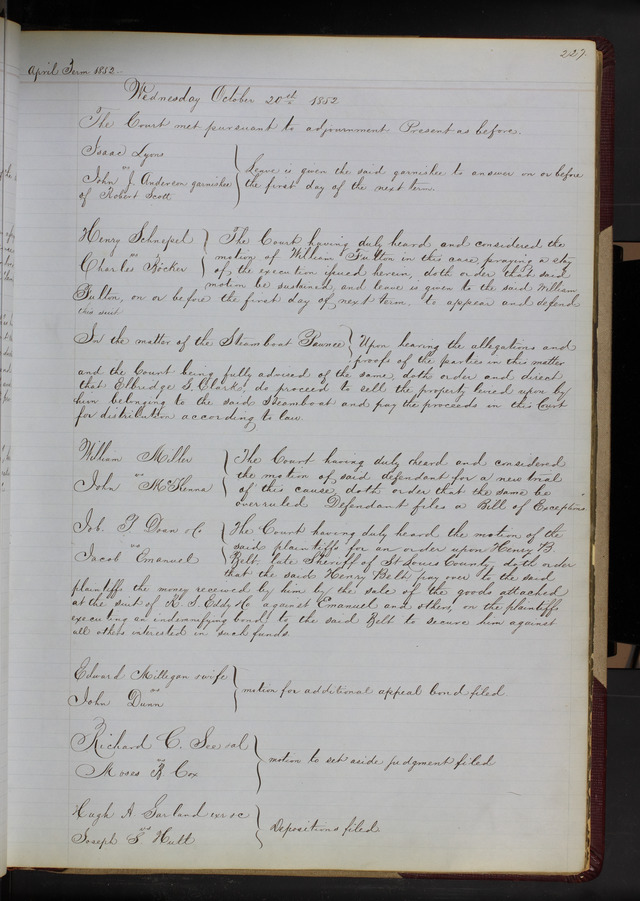 227
April Term 1852
Wednesday October 20th 1852
The Court met pursuant to adjournment Present as before.
Isaac Lyons
vs
John J. Anderson garnishee
of Robert Scott
Leave is given the said garnishee to answer on or before
the first day of the next term.
Henry Schnepel
vs
CharlesBöcker
The Court having duly heard and considered the
motion of William Fulton in this case praying a stay
of the execution issued herein, doth order that said
motion be sustained, and leave is given to the said William
Fulton, on or before the first day of next term, to appear and defend
this suit
In the matter of the Steamboat Pawnee
Upon hearing the allegations and
proofs of the parties in this matter
and the Court being fully advised of the same, doth order and direct
that Elbridge G. Clark, do proceed to sell the property levied upon by
him belonging to the said Steamboat and pay the proceeds in this Court
for distribution according to law.
William Miller
vs
John McKenna
The Court having duly heard and considered
the motion of said defendant for a new trial
of this cause, doth order that the same be
overruled Defendant files a Bill of Exceptions
Job. T Doan & Co
vs
Jacob Emanuel
The Court having duly heard the motion of the
said plaintiffs for an order upon Henry B.
Belt, late Sheriff of St Louis County, doth order
that the said Henry Belt pay over to the said
plaintiffs the money received by him by the sale of the goods attached
at the suit of Eddy & Co against Emanuel and others, on the plaintiffs
executing an indemnifying bond to the said Belt to secure him against
all others interested in such funds.
Edward Milligan & wife
vs
John Dunn
motion for additional appeal bond filed
Richard C. See et al
vs
Moses B Cox
motion to set aside judgment filed
Hugh A Garland exr &c
vs
Joseph S Hull
Depositions filed